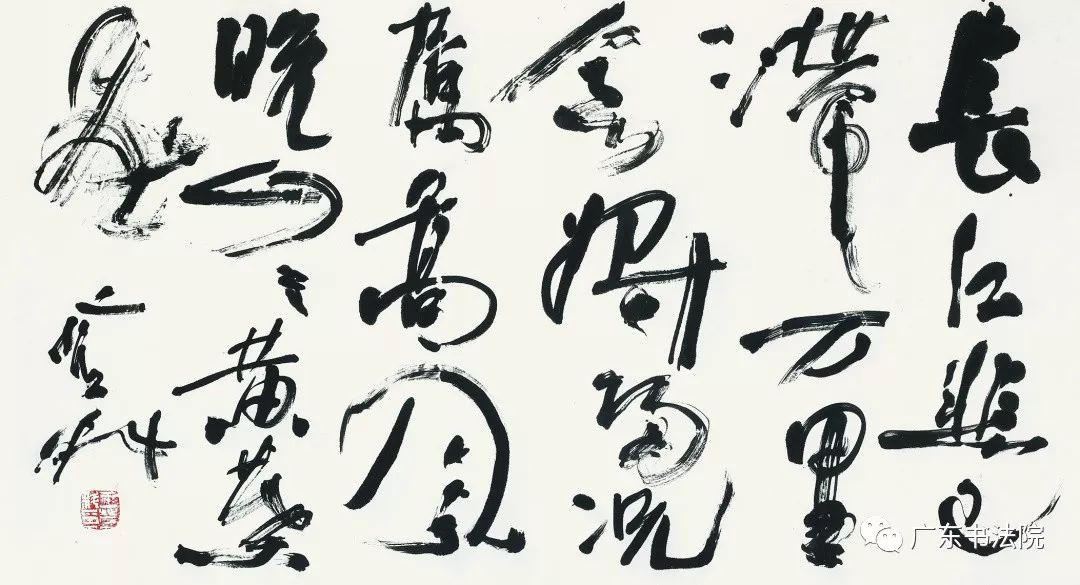 長江悲已
滯万里
念將歸况
属高風
晚山〻黄葉
飛
广东书法院